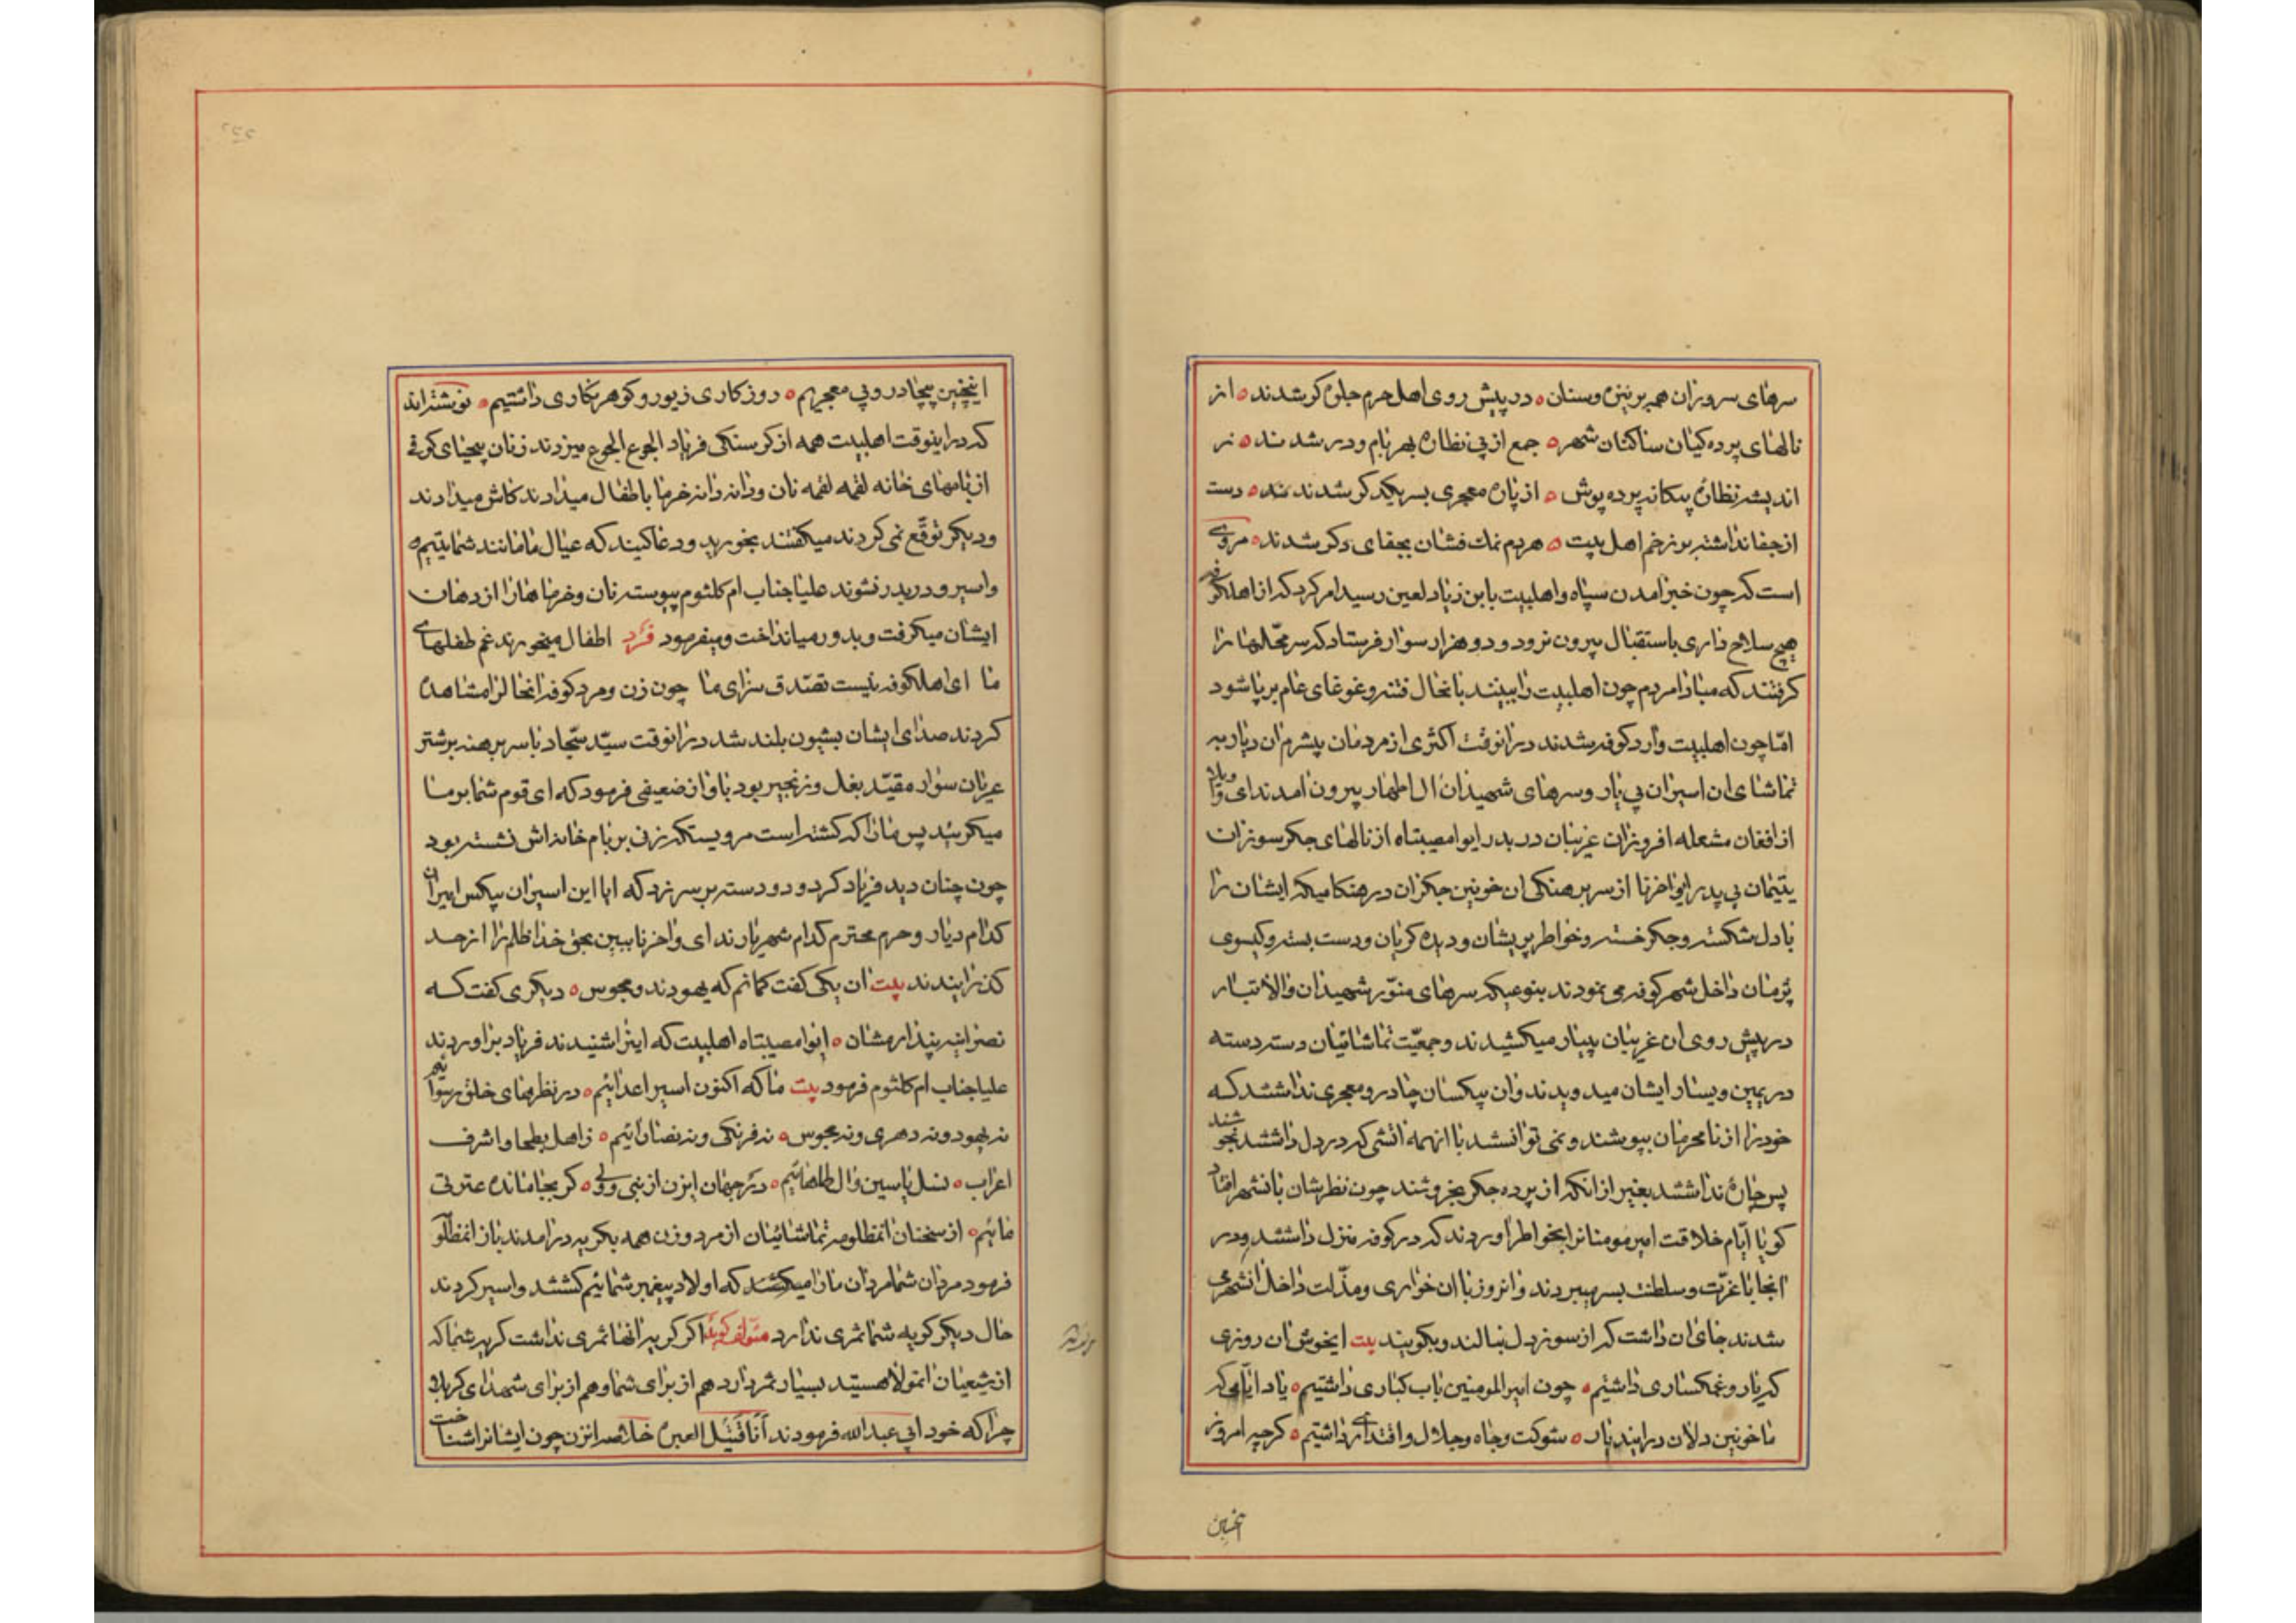 سرهای سروران همه بر نیزه و سنان ه در پیش روی اهل حرم جلوه‌کر شدند ه از
نالهای پرده کیان ساکنان شهر ه جمع از پی نظاره بهر بام و در شدند ه نز
اندیشه نظاره بیکانه پرده پوش ه از پاره معجری بسر یکدکر شدند ه دست
از جفا نداشته بر زخم اهل بیت ه هر دم نمک فشان بجفای دکر شدند ه مروی
است که چون خبر امدن سپاه و اهلبیت بابن زیاد لعین رسید امر کرد که از اهل کوفه
هیچ سلاح داری باستقبال بیرون نرود و دو هزار سوار فرستاد که سر محّلها را
کرفتند که مبادا مردم چون اهلبیت را ببینند بانحال فتنه و غوغای عام برپا شود
امّا چون اهلبیت وارد کوفه شدند در انوقت اکثری از مردمان بیشرم ان دیار به
تماشای ان اسیران بی یار و سرهای شهیدان ال اطهار بیرون امدند ای واویلا
از افغان مشعله افروزان غریبان در بدر ایوامصیبتاه از نالهای جکر سوزان
یتیمان بی پدر ایواحزنا از سر برهنکی ان خونین جکران در هنکامیکه ایشان را
با دل شکسته و جکر خسته و خواطر پریشان و دیده کریان و دست بسته و کیسوی
داخل شهر کوفه می نمودند بنوعیکه سرهای منوّر شهیدان والاتبار
در پیش روی ان غریبان بییار میکشیدند و جمعیّت تماشائیان دسته دسته
در یمین و یسار ایشان میدویدند و ان بیکسان چادر و معجری نداشتند که
خود را از نامحرمان بپوشند و نمی توانستند با انهمه اتشی که در دل داشتند بجوشند
پس چاره نداشتند بغیر از انکه از پرده جکر بخروشند چون نظرشان بانشهر افتاد
کویا ایّام خلافت امیر مومنانرا بخواطر اوردند که در کوفه منزل داشتند و در
انجا با عزّت و سلطنت بسر میبردند و انروز با ان خواری و مذّلت داخل انشهر می
شدند جای ان داشت که از سوز دل بنالند و بکویند بیت ایخوش ان روزی
که یار و غمکساری داشتیم ه چون امیر المومنین باب کباری داشتیم ه یاد ایّامی که
ما خونین دلان در ایندیار ه شوکت و جاه و جلال و اقتداری داشتیم ه کرچه امروز
اینچنین
اینچنین بیچادر و بی معجریم ه روزکاری زیور و کوهر نکاری داشتیم ه نوشته‌اند
که در اینوقت اهلبیت همه از کرسنکی فریاد الجوع الجوع میزدند زنان بیحیای کوفی
از بامهای خانه لقمه لقمه نان و دانه دانه خرما باطفال میدادند کاش میدادند
و دیکر توقّع نمی کردند میکفتند بخورید و دعا کنید که عیال ما مانند شما یتیم
و اسیر و در بدر نشوند علیا جناب ام کلثوم پیوسته نان و خرماها را از دهان
ایشان میکرفت و بدور میانداخت و میفرمود فرد اطفال میخورند غم طفلهای
ما ای اهل کوفه نیست تصّدق سزای ما چون زن و مرد کوفه انحال را مشاهده
کردند صدای ایشان بشیون بلند شد در انوقت سیّد سجّاد با سر برهنه بر شتر
عریان سوار مقیّد بغل و زنجیر بود باواز ضعیفی فرمود که ای قوم شما بر ما
میکریید پس ما را که کشته است مرویستکه زنی بر بام خانه‌اش نشسته بود
چون چنان دید فریاد کرد و دو دسته بر سر زد که ایا این اسیران بیکس امیران
کدام دیار و حرم محترم کدام شهریارند ای واحزنا ببین بحق خدا ظلم را از حد
کذرانیدند بیت ان یکی کفت کمانم که یهودند و مجوس ه دیکری کفت که
نصرانیه پندارمشان ه ایوامصیبتاه اهلبیت که اینرا شنیدند فریاد براوردند
علیا جناب ام کلثوم فرمود بیت ما که اکنون اسیر اعدائیم ه در نظرهای خلق رسوائیم
نه یهود و نه دهری و نه مجوس ه نه فرنکی و نه نصارائیم ه ز اهل بطحا و اشرف
اعراب ه نسل یاسین و ال طاهائیم ه در جهان ایزن از نبی و ولی ه کر بجا مانده عترتی
مائیم ه از سخنان انمظلومه تماشائیان از مرد و زن همه بکریه درامدند باز انمظلومه
فرمود مردان شما مردان ما را میکشند که اولاد پیغمبر شمائیم کشتند و اسیر کردند
حال دیکر کریه شما ثمری ندارد مؤلف کوید اکر کریه انها ثمری نداشت کریه شما که
از شیعیان انمولا هستید بسیار ثمر دارد هم از برای شما و هم از برای شهدای کربلا
چرا که خود ابی عبدالله فرمودند أنا قَتیل العبرة خلاصه انزن چون ایشانرا شناخت